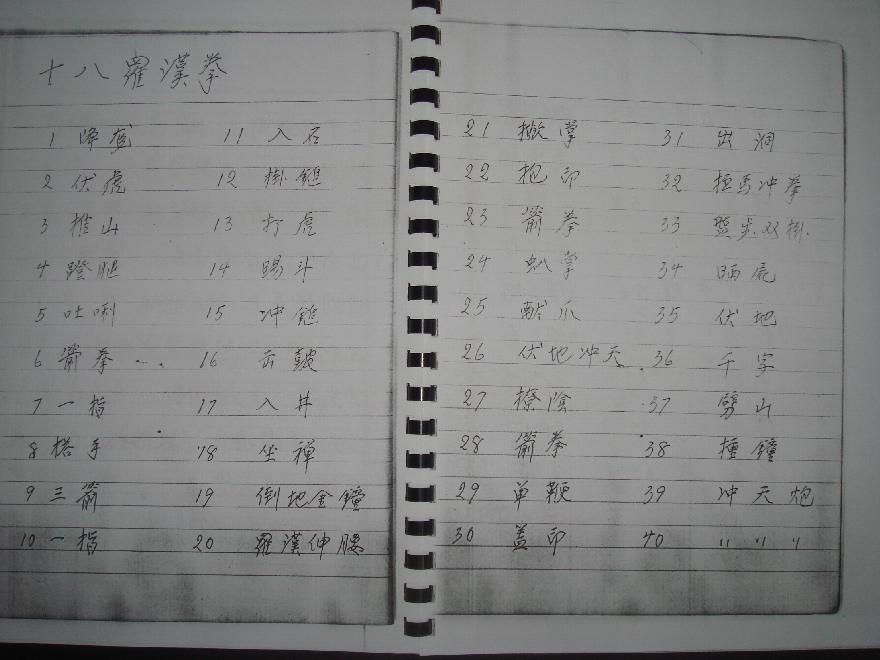 十八羅漢拳
1 降龙 11 入石
2 伏虎 12 掛鎚
3 推山 13 打虎
4 蹬腿 14 踢斗
5 吐唎 15 冲鎚
6 箭拳 16 击鼓
7 一指 17 入井
8 搭手 18 坐禅
9 三箭 19 倒地金鐘
10 一指 20 羅漢伸腰
21 撇掌 31 出洞
22 抱印 32 冲拳
23 箭拳 33 盤步双掛
24 掌 34 晒屁
25 献爪 35 伏地
26 伏地冲天 36 千字
27 撩陰 37 劈山
28 箭拳 38 撞鐘
29 单鞭 39 冲天炮
30 盖印 40 〃 〃 〃